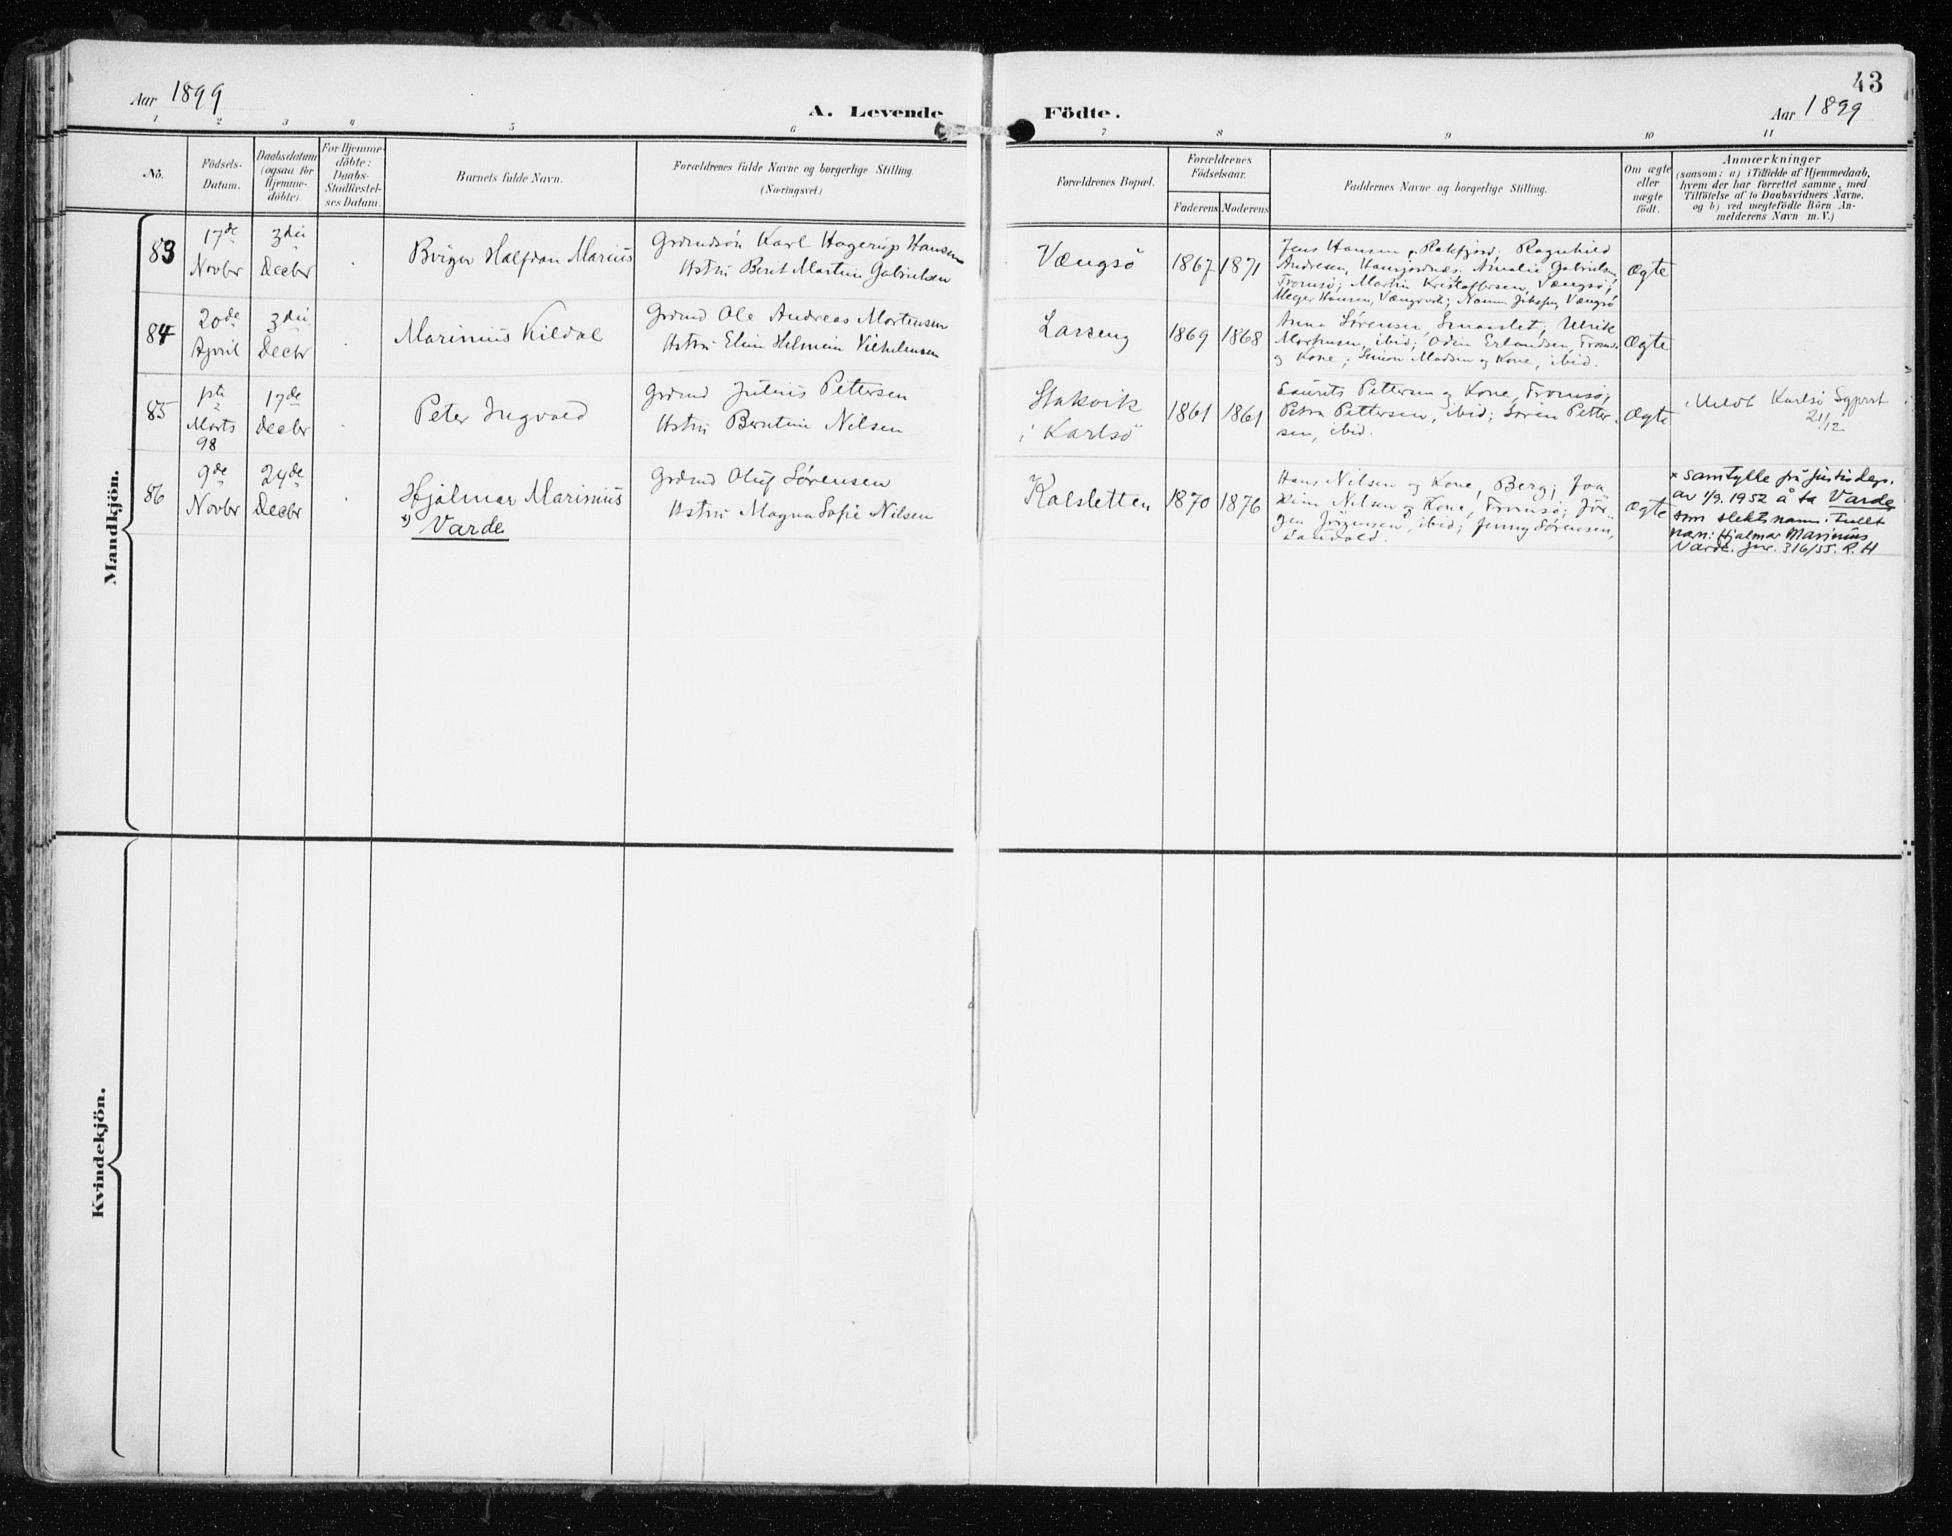 43
Aar 1899
A. Levende Födte.
Aar 1899
1 2 3 4 5 6 7 8 9 10 11
No.
Födsels-
Datum.
Daabsdatum
(ogsaa for
Hjemme-
döbte).
For Hjemme-
döbte:
Daabs-
Stadfæstel-
ses Datum.
Barnets fulde Navn.
Forældrenes fulde Navne og borgerlige Stilling.
(Næringsvei.)
Forældrenes Bopæl.
Forældrenes
Födselsaar.
Faderens Moderens
Faddernes Navne og borgerlige Stilling.
Om ægte
eller
uægte
födt.
Anmærkninger
(saasom: a) i Tilfælde af Hjemmedaab,
hvem der har forrettet samme, med
Tilföielse af to Daabsvidners Navne,
og b) ved uægtefödte Börn An-
melderens Navn m. V.)
Mandkjön.
83
17de
Novbr
3die
Decbr
Birger Halfdan Marius
Grdmdsön Karl Hagerup Hansen
Hstru Berit Martine Gabrielsen
Vængsö
1867 1871
Jens Hansen, Rakfjord; Ragnhild
Andresen, Hansjordnæs; Amalie Gabrielsen,
Tromsö; Martin Kristoffersen, Vængsö;
Meyer Hansen, Vængsö
ægte
84
20de
April
3die
Decbr
Marinius Kildal
Grdmd Ole Andreas Mortensen
Hstru Eline Helmine Vilhelmsen
Larseng
1869 1868
Anna Sørensen, Smaaslet; Ulrik
Mortensen, ibid; Odin Erlandsen, Tromsö
og Kone; Simon Madsen og Kone, ibid.
ægte
85
1ste
Marts
98
17de
Decbr
Peter Ingvald
Grdmd Julius Pettersen
Hstru Berntine Nilsen
Stakvik
i Karlsö
1861 1861
Laurits Pettersen og Kone, Tromsö;
Petra Pettersen, ibid; Sören Petter-
sen, ibid.
ægte
Meldt Karlsö Sgprst
21/12
86
9de
Novbr
24de
Decbr
Hjalmar Marinius
x) Varde
Grdmd Oluf Sørensen
Hstru Magna Sofie Nilsen
Kalsletten
1870 1876
Hans Nilsen og Kone, Berg; Joa-
kim Nilsen og Kone, Tromsö; Jör-
gen Jörgensen, ibid; Jenny Sørensen,
ægte
x samtykke fra Justisdep.
av 1/9. 1952 å ta Varde
som slektsnavn: Fullt
navn: Hjalmar Marinius
Varde. Jnr. 316/55. R. H
Kvindekjön.